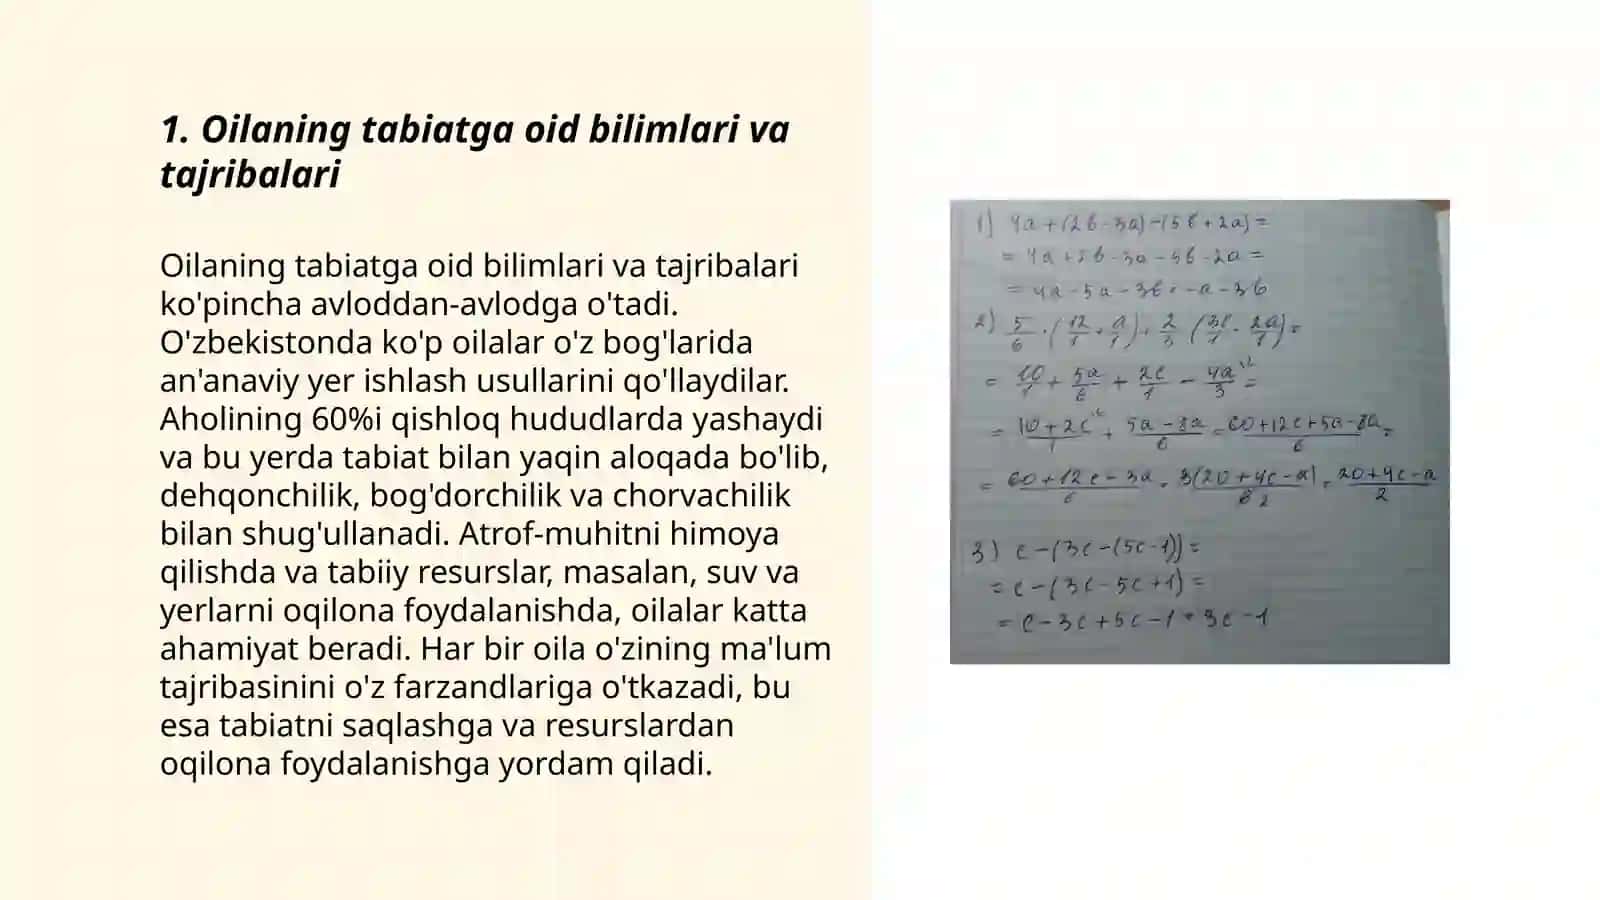 1. Oilaning tabiatga oid bilimlari va
tajribalari
Oilaning tabiatga oid bilimlari va tajribalari
ko'pincha avloddan-avlodga o'tadi.
O'zbekistonda ko'p oilalar o'z bog'larida
an'anaviy yer ishlash usullarini qo'llaydilar.
Aholining 60%i qishloq hududlarda yashaydi
va bu yerda tabiat bilan yaqin aloqada bo'lib,
dehqonchilik, bog'dorchilik va chorvachilik
bilan shug'ullanadi. Atrof-muhitni himoya
qilishda va tabiiy resurslar, masalan, suv va
yerlarni oqilona foydalanishda, oilalar katta
ahamiyat beradi. Har bir oila o'zining ma'lum
tajribasinini o'z farzandlariga o'tkazadi, bu
esa tabiatni saqlashga va resurslardan
oqilona foydalanishga yordam qiladi.
1) 4a+(2b-3a)-(5b+2a)=
= 4a+2b-3a-5b-2a=
= 4a-5a-3b=-a-3b
2) 5/6·(12/1+a/1)+2/3(3c/1-2a/1)=
= 10/1+5a/6+2c/1-4a/3=
= 10+2c/1+5a-8a/6=60+12c+5a-8a/6=
= 60+12c-3a/6=3(20+4c-a)/6 2=20+4c-a/2
3) c-(3c-(5c-1))=
= c-(3c-5c+1)=
= c-3c+5c-1=3c-1